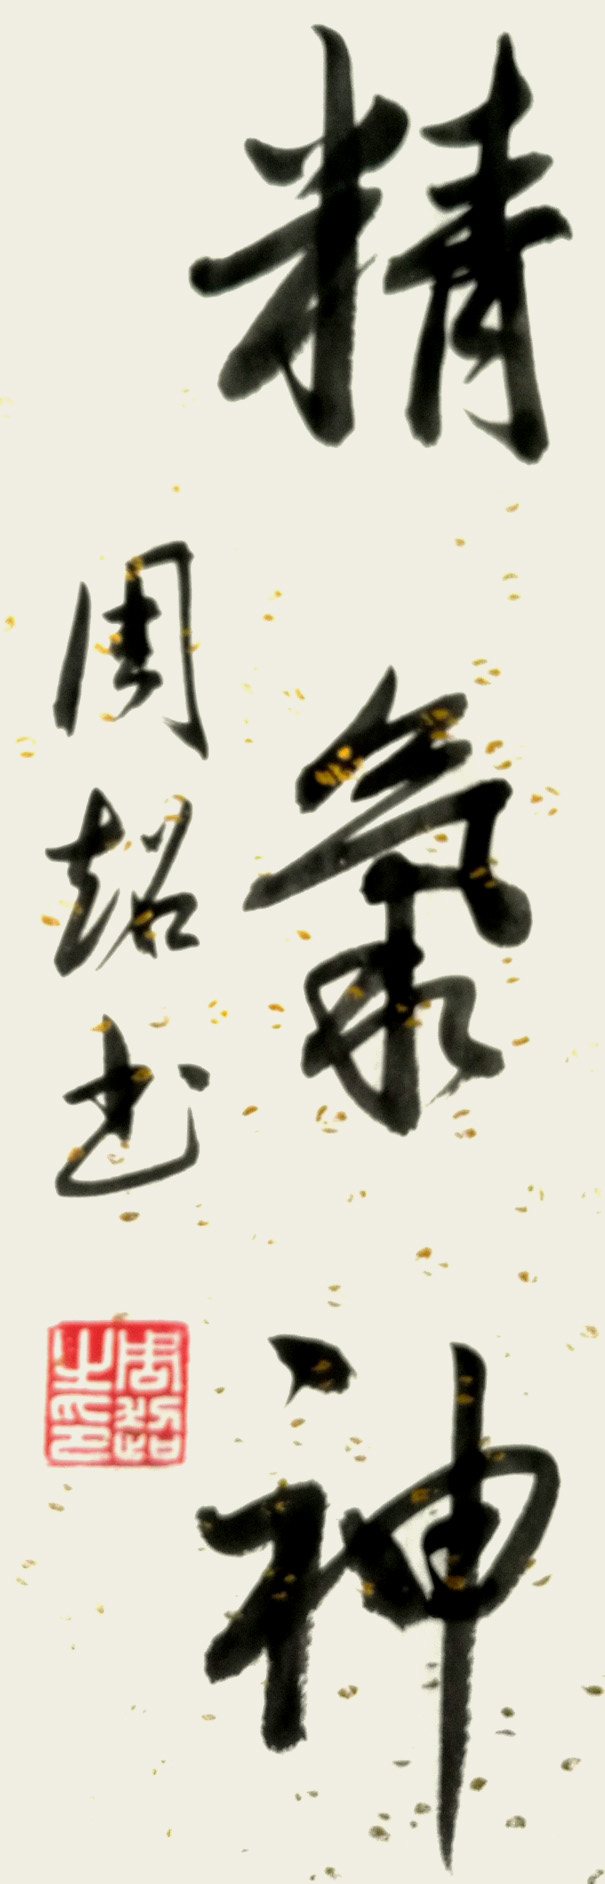 精氣神
周超书
周超之印